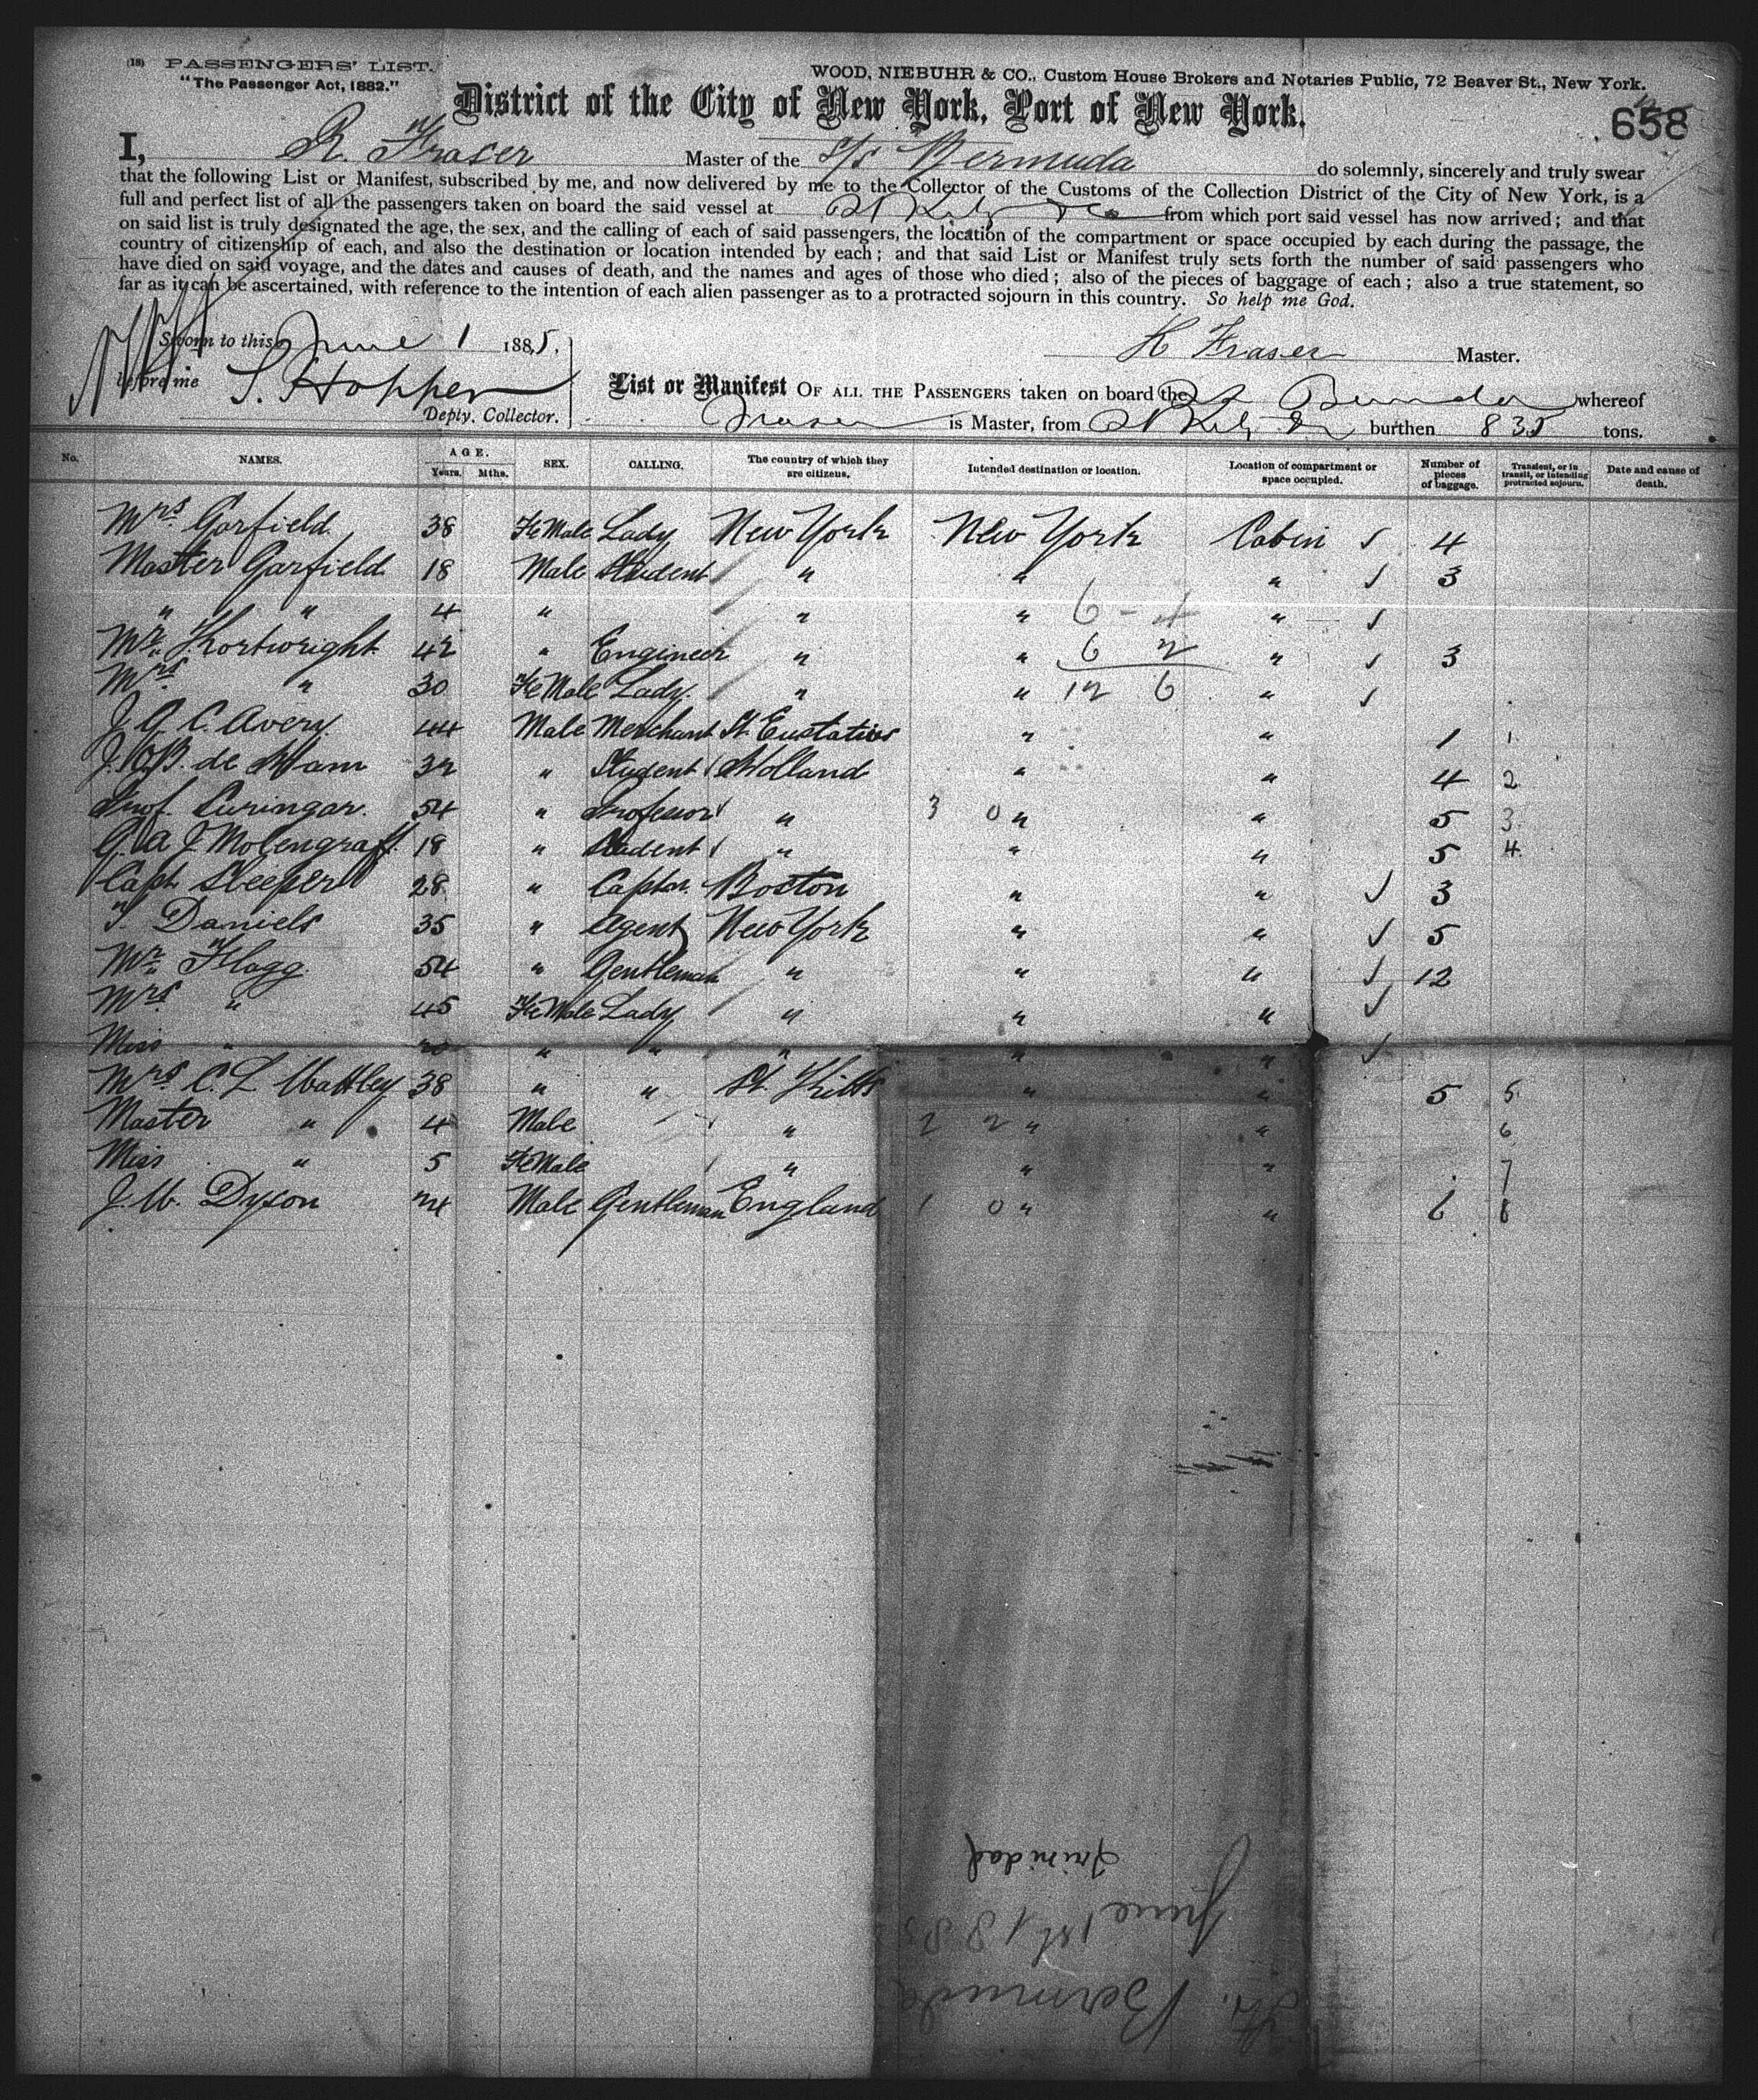 (18) PASSENGERS' LIST.
"The Passenger Act, 1882."
WOOD, NIEBUHR & CO., Custom House Brokers and Notaries Public, 72 Beaver St., New York.
District of the City of New York, Port of New York.
658
I, R. Fraser Master of the S/S Bermuda do solemnly, sincerely and truly swear
that the following List or Manifest, subscribed by me, and now delivered by me to the Collector of the Customs of the Collection District of the City of New York, is a
full and perfect list of all the passengers taken on board the said vessel at St Kitts &c from which port said vessel has now arrived; and that
on said list is truly designated the age, the sex, and the calling of each of said passengers, the location of the compartment or space occupied by each during the passage, the
country of citizenship of each, and also the destination or location intended by each; and that said List or Manifest truly sets forth the number of said passengers who
have died on said voyage, and the dates and causes of death, and the names and ages of those who died; also of the pieces of baggage of each; also a true statement, so
far as it can be ascertained, with reference to the intention of each alien passenger as to a protracted sojourn in this country. So help me God.
Sworn to this June 1 1885,
Fraser Master.
before me S. Hopper
Deply. Collector.
List or Manifest OF ALL THE PASSENGERS taken on board the Bermuda whereof
Fraser is Master, from St Kitts &c burthen 835 tons.
No. NAMES. AGE. Years. Mths. SEX. CALLING. The country of which they are citizens. Intended destination or location. Location of compartment or space occupied. Number of pieces of baggage. Transient, or in transit, or intending protracted sojourn. Date and cause of death.
Mrs Garfield 38 FeMale Lady New York New York Cabin ✓ 4
Master Garfield 18 Male Student " " " ✓ 3
" " 4 " " " 6 - 4 " ✓
Mr. Kortwright 42 " Engineer " " 6 2 " ✓ 3
Mrs " 30 FeMale Lady " " 12 6 " ✓
J. G. C. Avery 44 Male Merchant St. Eustatius " " 1 1
de 32 " Student Holland " " 4 2
Prof. 54 " Professor " 3 0 " " 5 3
G. A. J Molengraff 18 " Student " " " 5 4
Capt. Sleeper 28 " Captn. Boston " " ✓ 3
Daniels 35 " Agent New York " " ✓ 5
Mr. Flagg 54 " Gentleman " " " ✓ 12
Mrs " 45 FeMale Lady " " " ✓
Miss " 20 " " " " " ✓
Mrs C. L. Wattley 38 " " St. Kitts " " 5 5
Master " 4 Male " 2 2 " " 6
Miss " 5 FeMale " " " 7
J. W. Dyson 24 Male Gentleman England 1 0 " " 6 8
Trinidad
June 1st 1885
Str. Bermuda